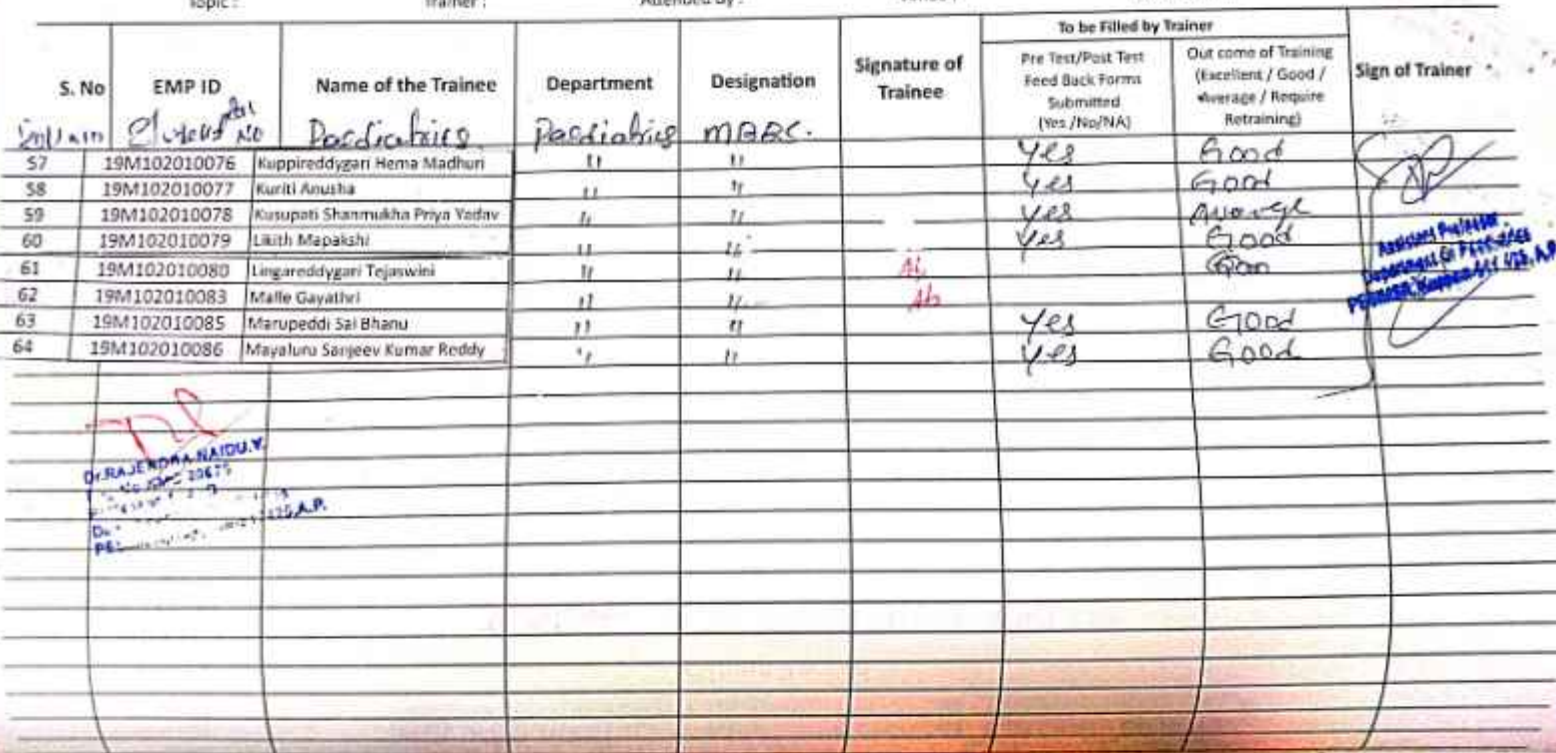 Topic : Trainer : Attended By :
To be Filled by Trainer
S. No EMP ID Name of the Trainee Department Designation Signature of Trainee Pre Test/Post Test Feed Back Forms Submitted (Yes /No/NA) Out come of Training (Excellent / Good / Average / Require Retraining) Sign of Trainer
No Paediatrics Paediatrics MBBS.
57 19M102010076 Kuppireddygari Hema Madhuri " " Yes Good
58 19M102010077 Kuriti Anusha " " Yes Good
59 19M102010078 Kusupati Shanmukha Priya Yadav " " Yes Average
60 19M102010079 Likith Mapakshi " " Yes Good
61 19M102010080 Lingareddygari Tejaswini " " Ab
62 19M102010083 Malle Gayathri " " Ab
63 19M102010085 Marupeddi Sai Bhanu " " Yes Good
64 19M102010086 Mayaluru Sanjeev Kumar Reddy " " Yes Good
Assistant Professor
Department Of Paediatrics
A.P.
Dr.RAJENDRA NAIDU.V.
A.P.